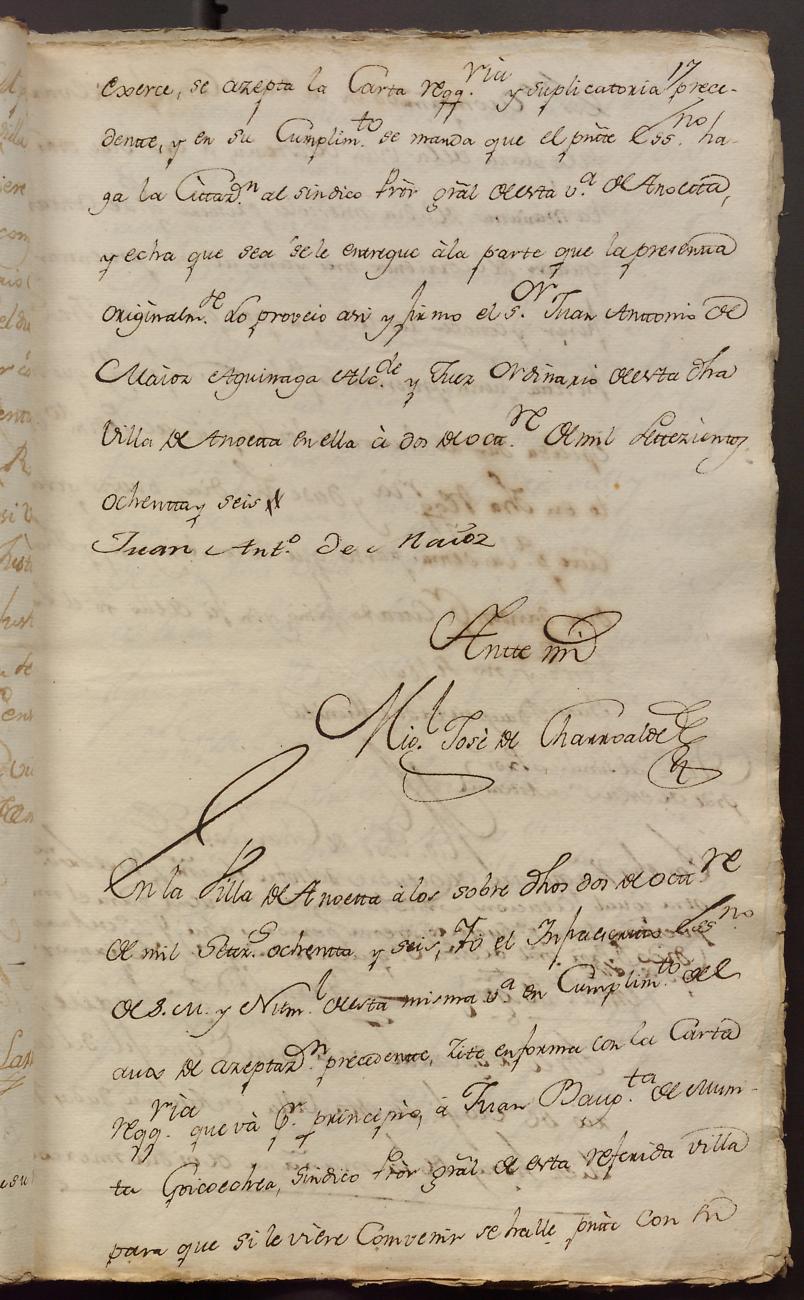 17
exerce, se azepta la Carta reqq.ria y suplicatoria prece-
dente, y en su Cumplim.to se manda que el pnte Ess.no ha-
ga la Cittaz.n al sindico Prôr grâl de esta v.a de Anoeta,
y echa que sea se le entregue à la parte que la presenta
originalm.te Lo proveio asi y firmo el s.or Juan Anttonio de
Maioz Aguinaga Alc.de y Juez Ordinario de esta dha
Villa de Anoetta en ella à dos de oct.re de mil settezientos
ochentta y seis
Juan Ant.o de Maioz
Antte mi
Mig.l José de Charroalde
En la Villa de Anoetta à los sobre dhos dos de oct.re
de mil Settez.s ochentta y seis, Yo el Infraescrito Ess.no
de S. M. y Num.l de esta misma v.a en Cumplim.to del
auto de azeptaz.n precedente, zite en forma con la Carta
reqq.ria que và p.r principio, à Juan Baup.ta de Mum-
ta Goicoechea, Sindico Prôr grâl de esta referida villa
para que si le viere Combenir se halle pnte con su